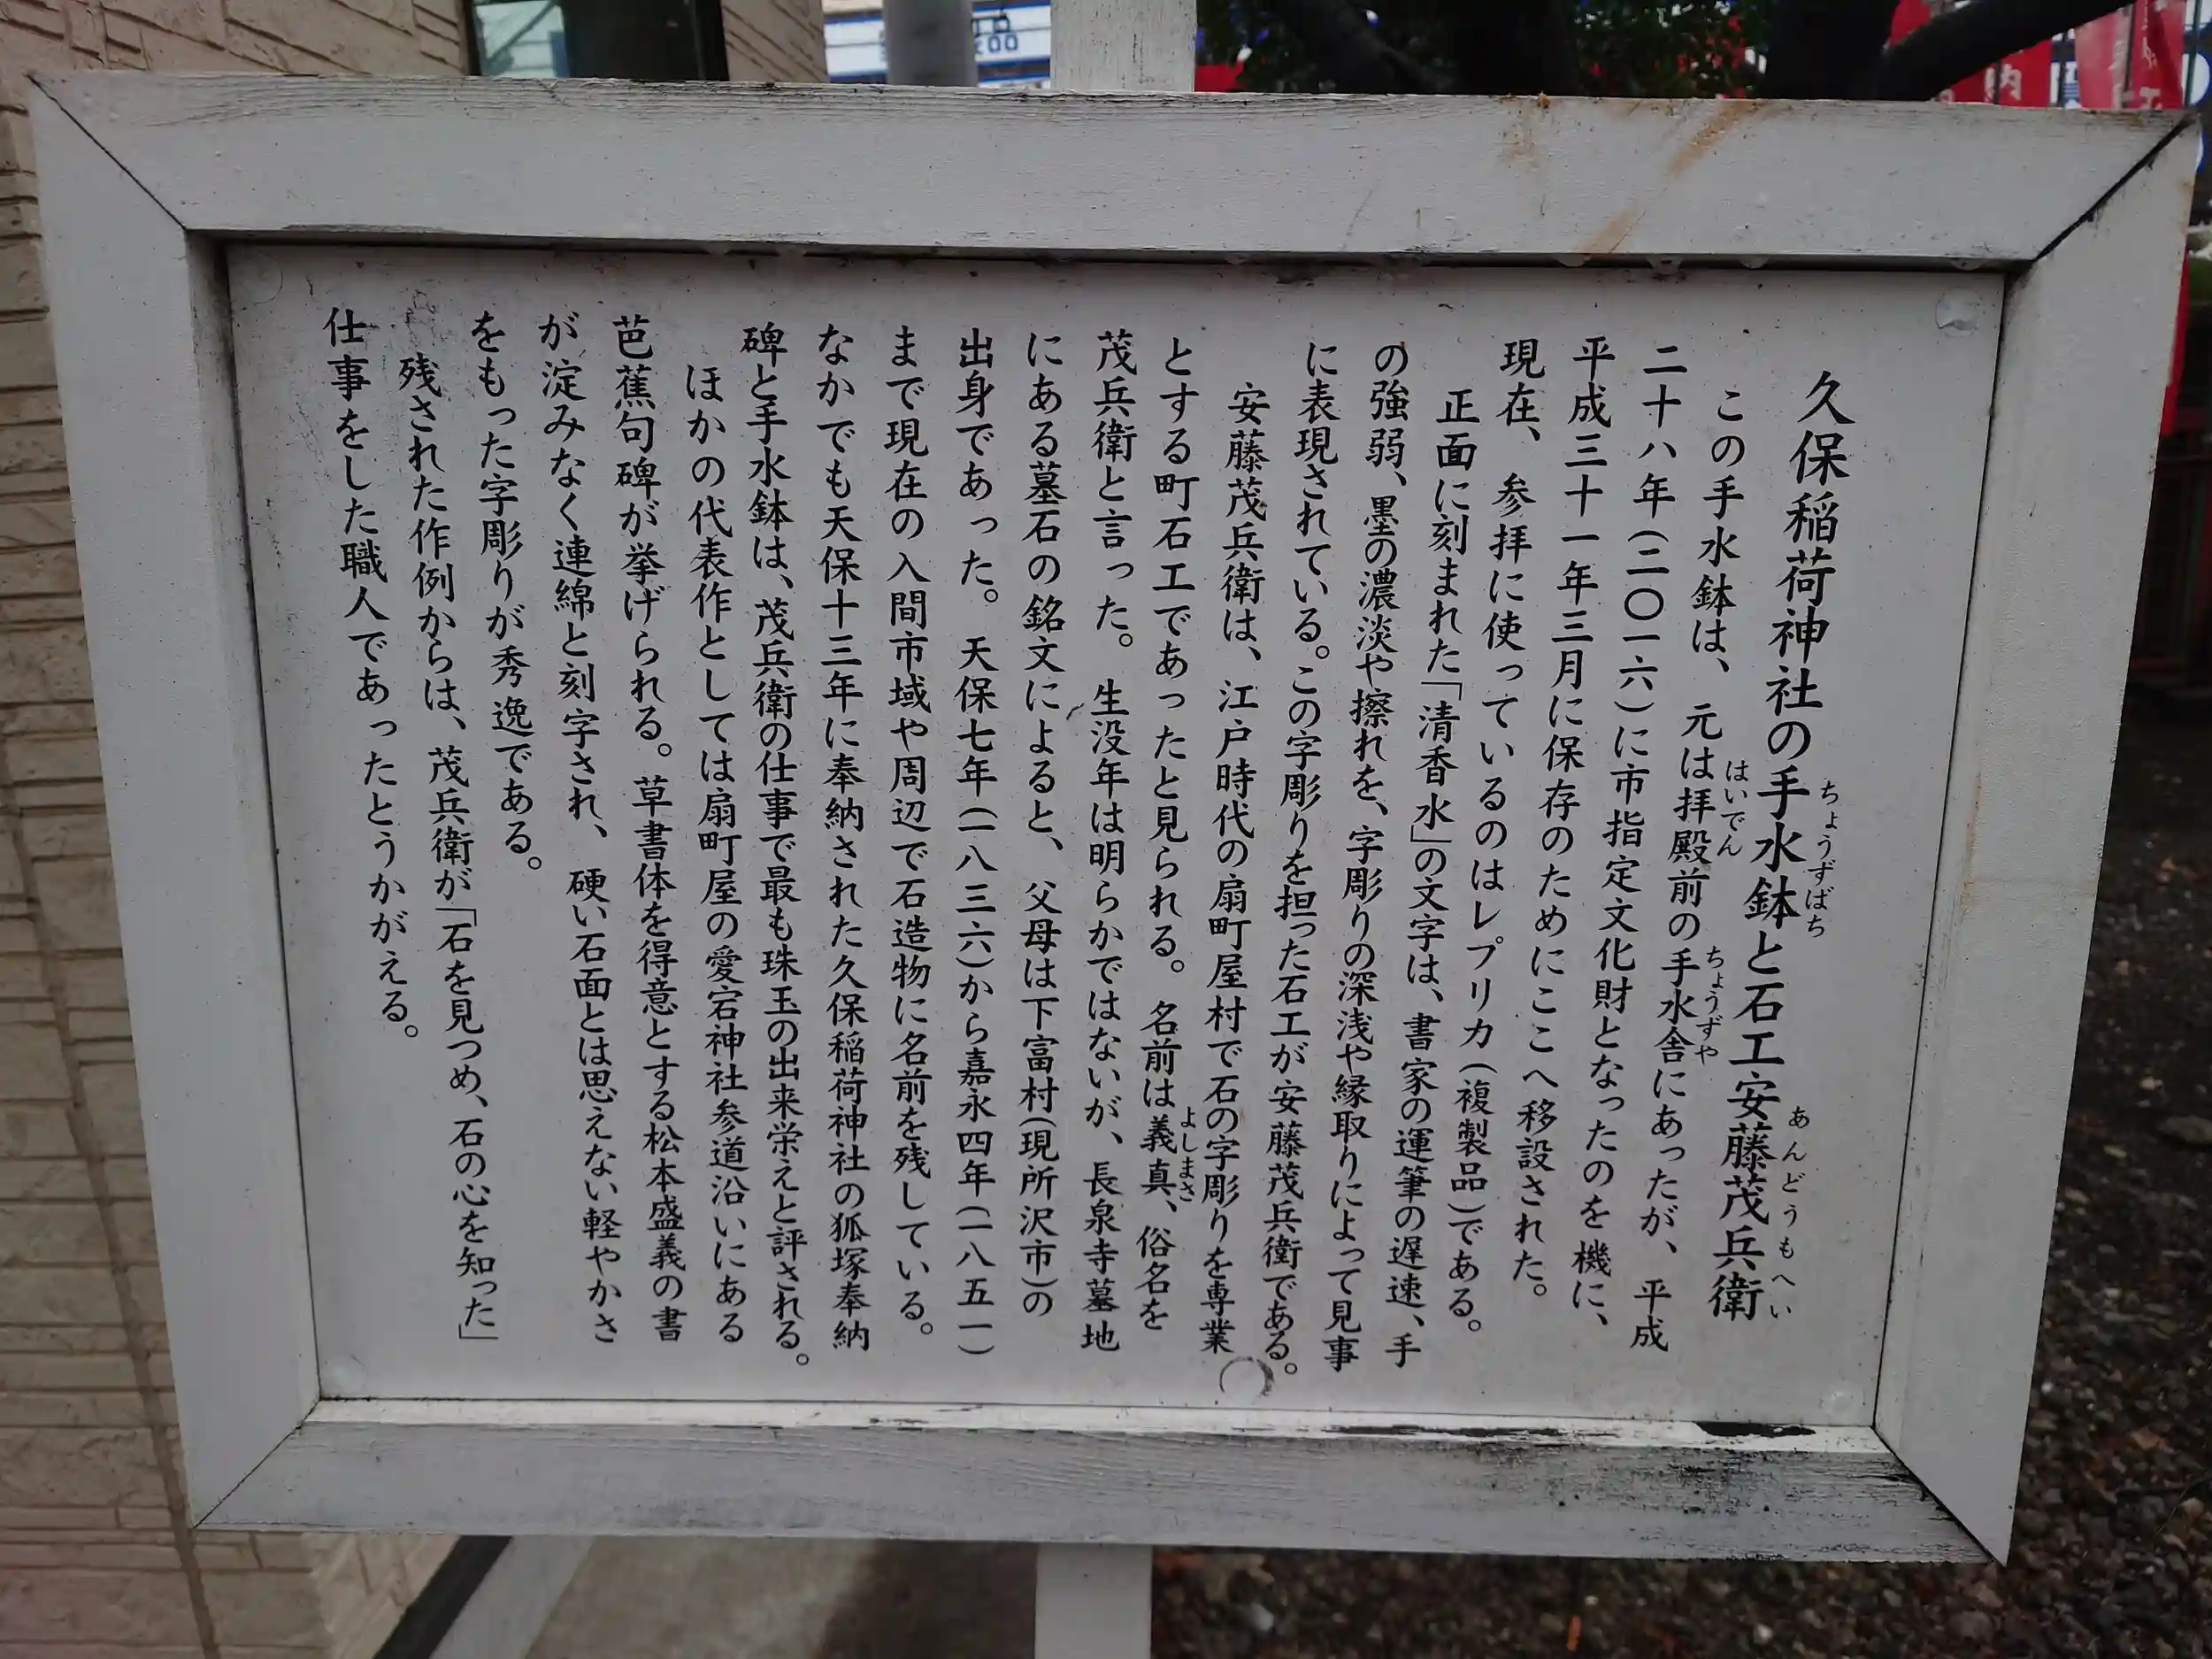 久保稲荷神社の手水鉢と石工安藤茂兵衛
ちょうずばち
あんどうもへい
この手水鉢は、元は拝殿前の手水舎にあったが、平成
はいでん
ちょうずや
二十八年(二〇一六)に市指定文化財となったのを機に、
平成三十一年三月に保存のためにここへ移設された。
現在、参拝に使っているのはレプリカ(複製品)である。
正面に刻まれた「清香水」の文字は、書家の運筆の遅速、手
の強弱、墨の濃淡や擦れを、字彫りの深浅や縁取りによって見事
に表現されている。この字彫りを担った石工が安藤茂兵衛である。
安藤茂兵衛は、江戸時代の扇町屋村で石の字彫りを専業
とする町石工であったと見られる。名前は義真、俗名を
よしまさ
茂兵衛と言った。生没年は明らかではないが、長泉寺墓地
にある墓石の銘文によると、父母は下富村(現所沢市)の
出身であった。天保七年(一八三六)から嘉永四年(一八五一)
まで現在の入間市域や周辺で石造物に名前を残している。
なかでも天保十三年に奉納された久保稲荷神社の狐塚奉納
碑と手水鉢は、茂兵衛の仕事で最も珠玉の出来栄えと評される。
ほかの代表作としては扇町屋の愛宕神社参道沿いにある
芭蕉句碑が挙げられる。草書体を得意とする松本盛義の書
が淀みなく連綿と刻字され、硬い石面とは思えない軽やかさ
をもった字彫りが秀逸である。
残された作例からは、茂兵衛が「石を見つめ、石の心を知った」
仕事をした職人であったとうかがえる。
納